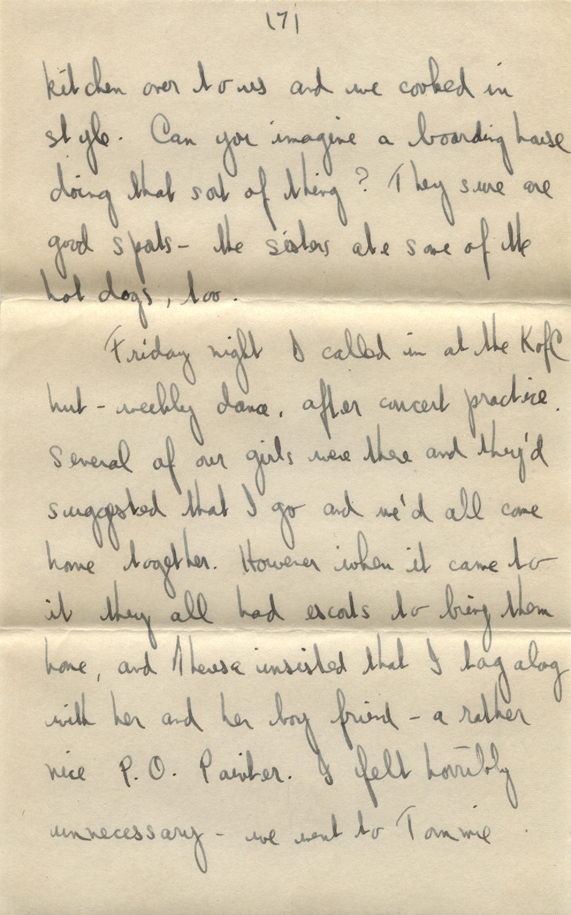 (7)
kitchen over to us and we cooked in
style. Can you imagine a boarding house
doing that sort of thing? They sure are
good spots - the sisters ate some of the
hot dogs, too.
Friday night I called in at the K of C
hut - weekly dance, after concert practice.
Several of our girls were there and they'd
suggested that I go and we'd all come
home together. However when it came to
it they all had escorts to bring them
home, and Theresa insisted that I tag along
with her and her boy friend - a rather
nice P.O. Painter. I felt horribly
unnecessary - we went to Tommie